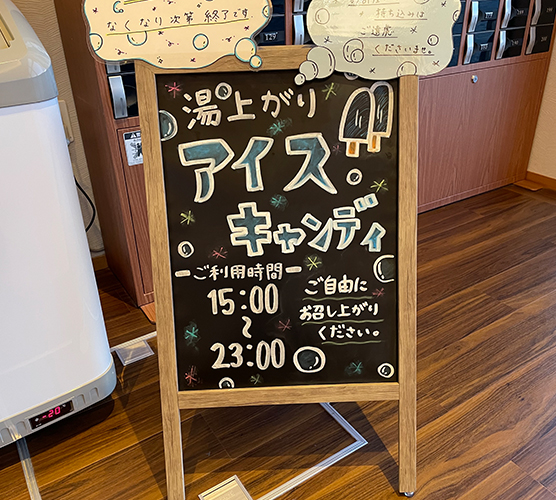 なくなり次第 終了です。
持ち込みは
ご遠慮
くださいませ。
湯上がり
アイス
キャンディ
ーご利用時間ー
15:00
~
23:00
ご自由に
お召し上がり
ください。
-20